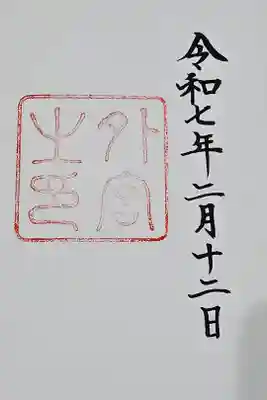 令和七年二月十二日
外宮
之印